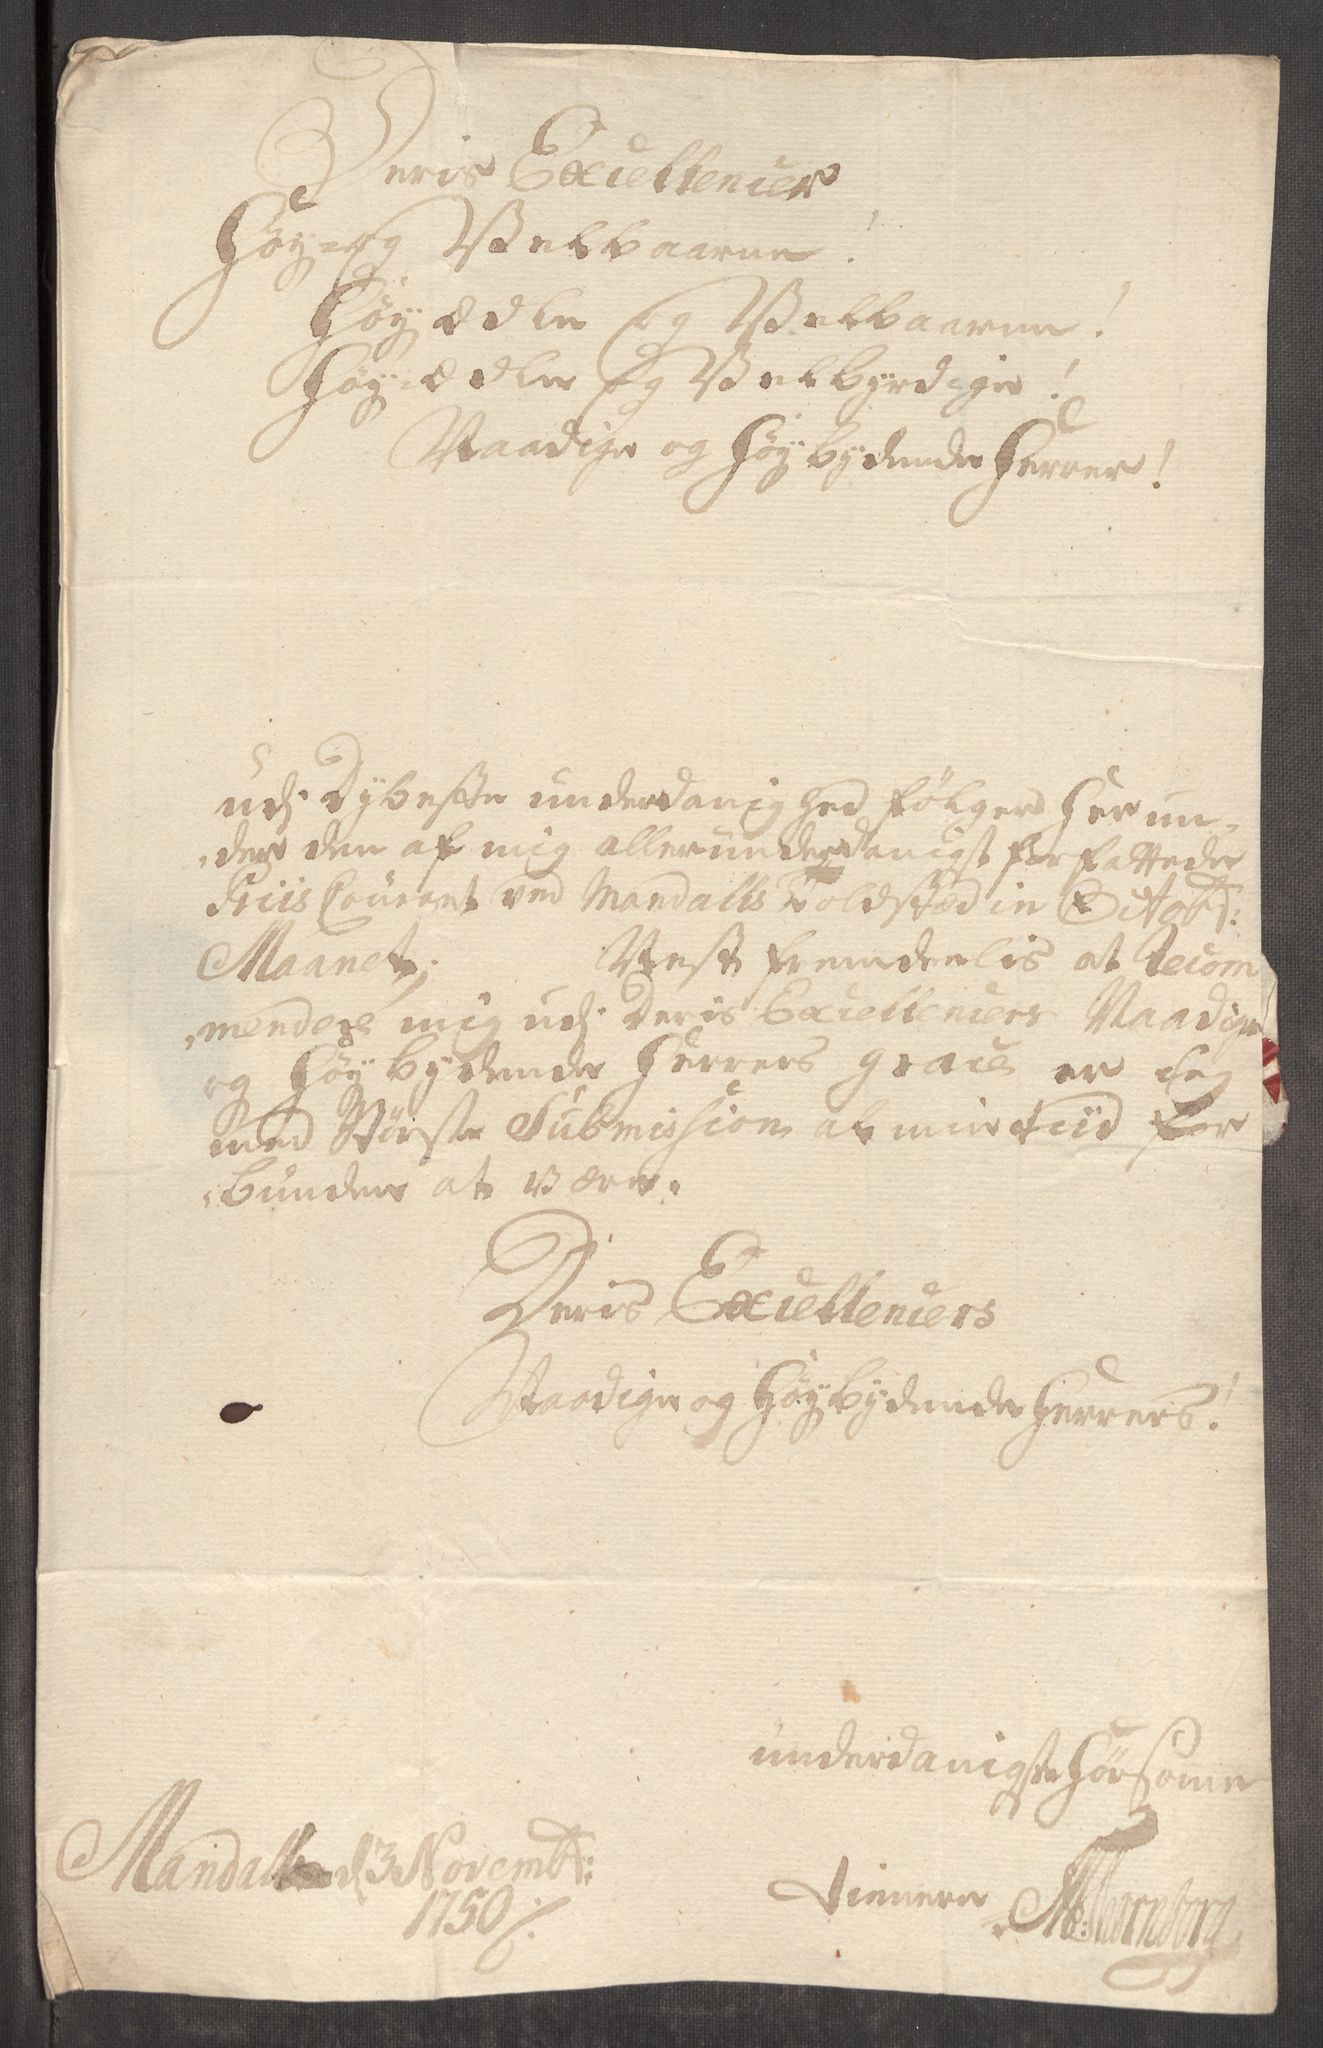 Deris Excellencer
Høy- og Velbaarne!
Høyædle og Velbaarne!
Høy-ædle og Velbyrdige!
Naadige og Høybydende Herrer!
udj Dybeste underdanighed følger Her un-
der den af mig allerunderdanigst forfattede
Priis Courant ved Mandalls Toldsted in Octobr:
Maanet; Nest fremdeelis at Recom
mendere mig udj Deris Excellencers Naadige
og Høybydende Herrers grace er ieg
med Største Submission al min tiid for
bunden at være.
Deris Excellencers
Naadige og Høybydende Herrers!
underdanigste Hørsome
Mandall d 3 Novembr:
1750
tienere